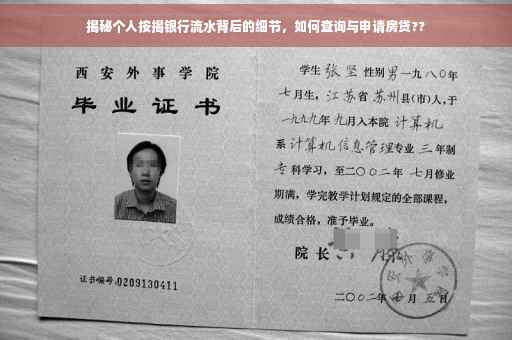 揭秘个人按揭银行流水背后的细节，如何查询与申请房贷??
西安外事学院
毕业证书
证书编号:0209130411
学生 张坚 性别男 一九八〇年
七月生，江苏省 苏州县(市)人，于
一九九九年 九月入本院 计算机
系 计算机信息管理专业 三 年制
专科学习，至二〇〇二年 七月修业
期满，学完教学计划规定的全部课程，
成绩合格，准予毕业。
院长
二〇〇二年 月五日